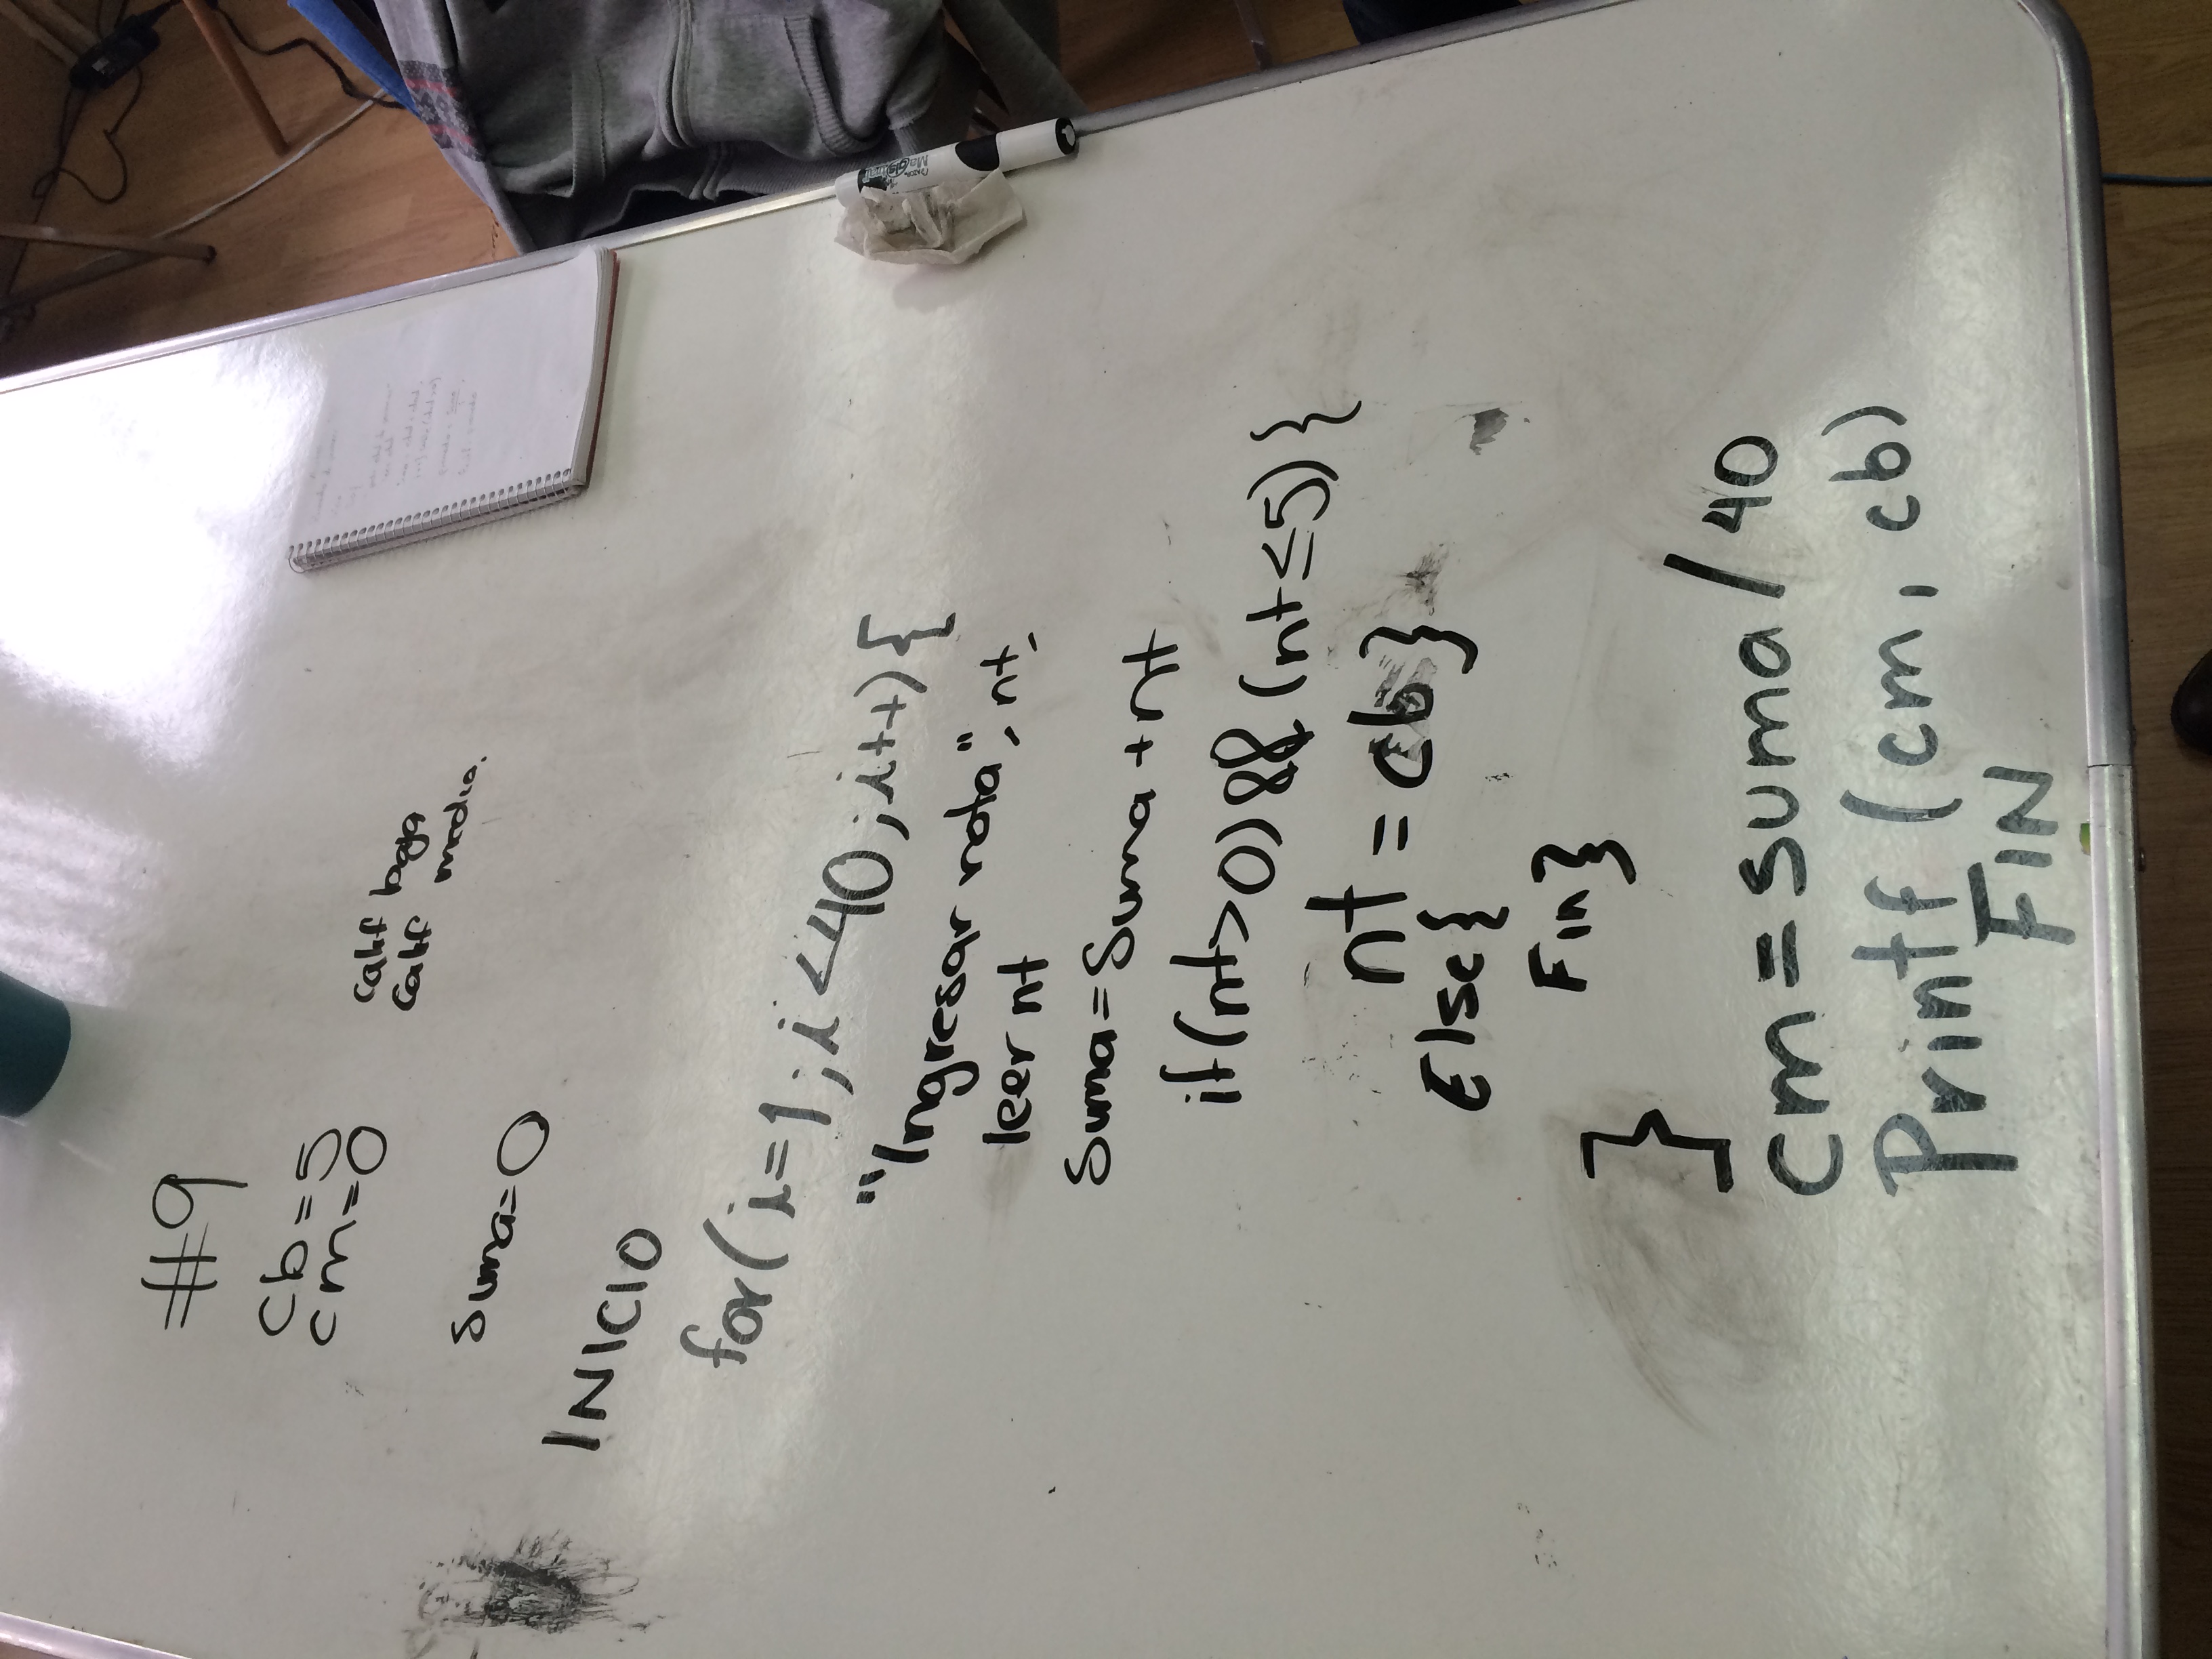 #9
cb=5
cm=0
calif baja
calif media.
suma=0
INICIO
for(i=1;i<40;i++){
"Ingresar nota", nt,
leer nt
Suma=Suma+nt
if(nt>0)&&(nt≤5){
nt=cb}
Else{
Fin}
}
cm=suma/40
Printf(cm, cb)
FIN